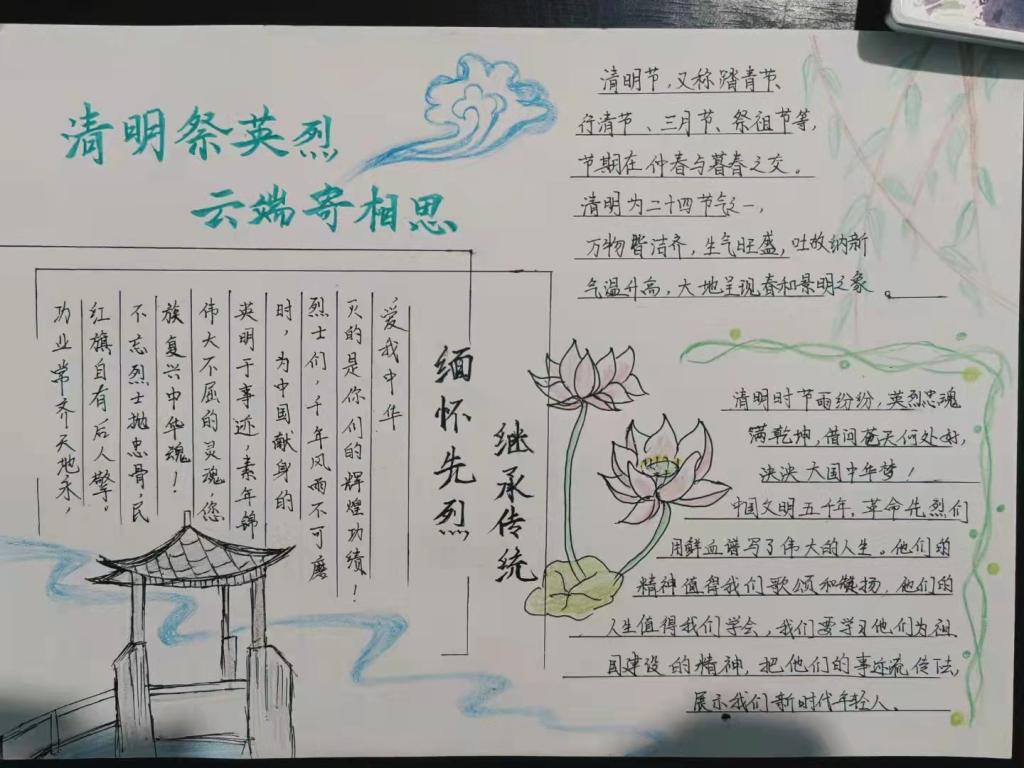 清明祭英烈
云端寄相思
功业常齐天地永，
红旗自有后人擎。
不忘烈士抛忠骨，民
族复兴中华魂！
伟大不屈的灵魂，您
英明于事迹，素年锦
时，为中国献身的
烈士们，千年风雨不可磨
灭的是你们的辉煌功绩！
爱我中华
缅怀先烈
继承传统
清明节，又称踏青节、
行清节、三月节、祭祖节等，
节期在仲春与暮春之交。
清明为二十四节气之一，
万物皆洁齐，生气旺盛，吐故纳新
气温升高，大地呈现春和景明之象。
清明时节雨纷纷，英烈忠魂
满乾坤，借问苍天何处好，
泱泱大国中华梦！
中国文明五千年，革命先烈们
用鲜血谱写了伟大的人生。他们的
精神值得我们歌颂和飘扬，他们的
人生值得我们学会，我们要学习他们为祖
国建设的精神，把他们的事迹流传下去，
展示我们新时代年轻人、